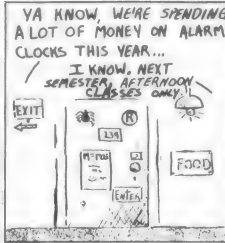 YA KNOW, WE'RE SPENDING
A LOT OF MONEY ON ALARM
CLOCKS THIS YEAR...
I KNOW. NEXT
SEMESTER, AFTERNOON
CLASSES ONLY.
EXIT
R
239
FOOD
ENTER